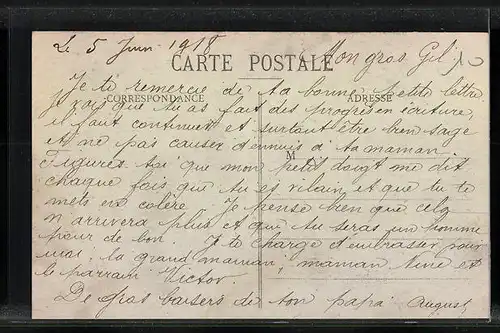 Le 5 Juin 1918
Mon gros Gil
CARTE POSTALE
Je te remercie de ta bonne petite lettre
CORRESPONDANCE
ADRESSE
Je vois que tu as fait des progrès en écriture,
il faut continuer et surtout être bien sage
et ne pas causer d'ennuis à ta maman.
M
Figures toi que mon petit doigt me dit
chaque fois que tu es vilain, et que tu te
mets en colère. Je pense bien que cela
n'arrivera plus et que tu seras un homme
pour de bon. Je te charge d'embrasser pour
moi, ta grand maman, maman Nine et
le parrain Victor.
De gros baisers de ton papa August